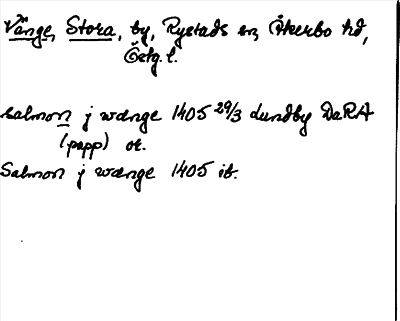 Vänge, Stora, by, Rystads sn, Åkerbo hd,
Östg. l.
salmon j wænge 1405 29/3 Lundby DaRA
(papp) or.
Salmon j wænge 1405 ib.